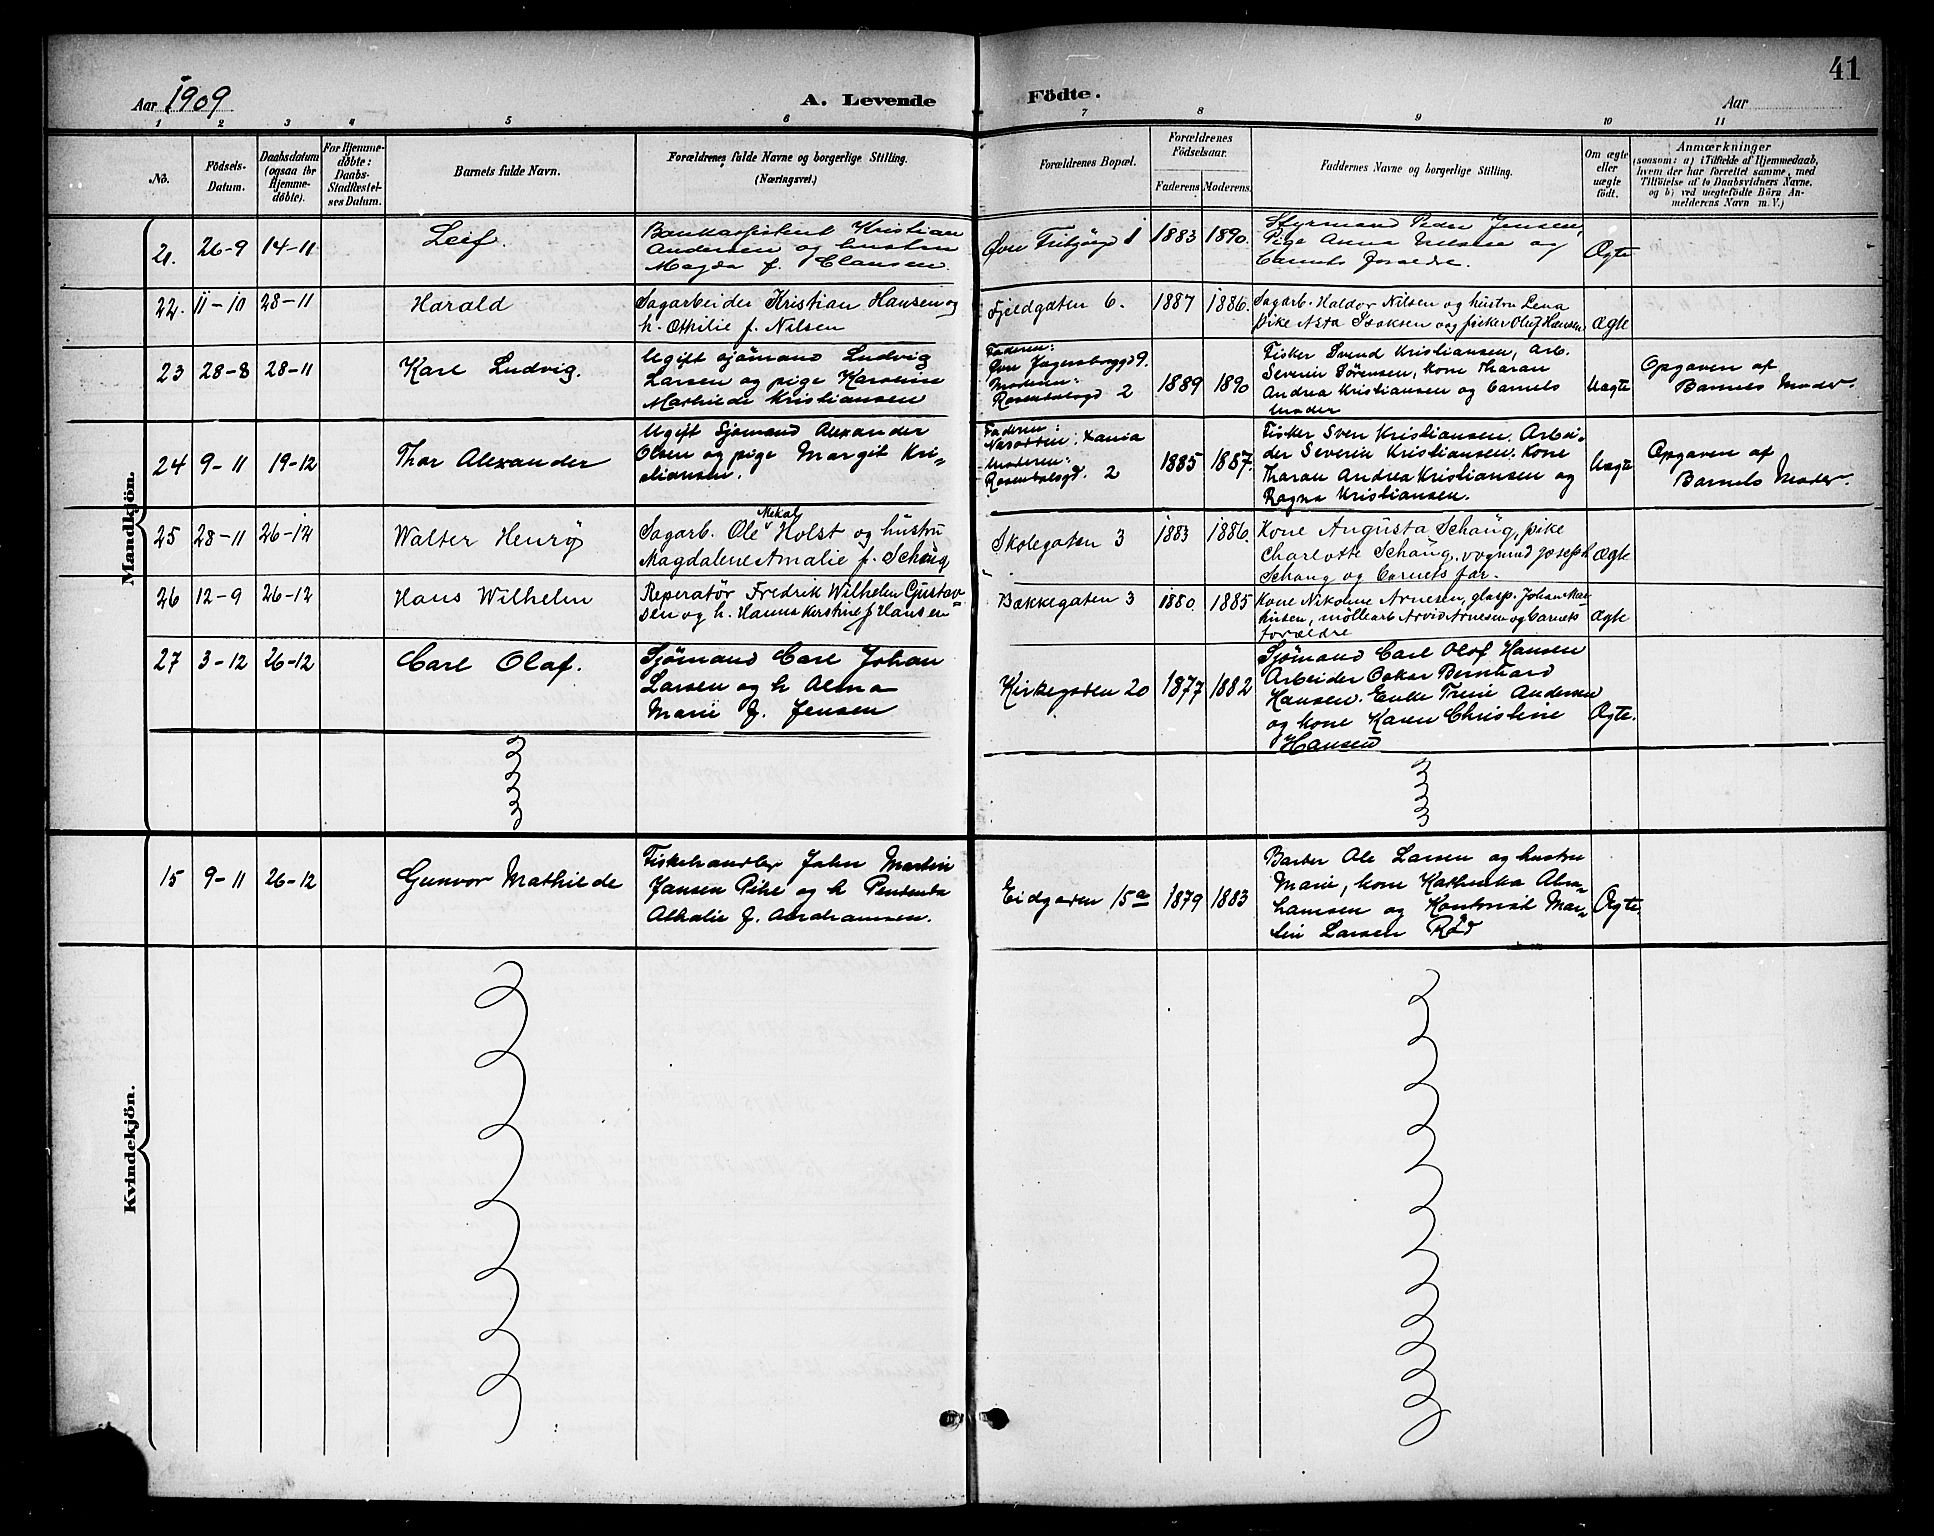 41
Aar 1909
A. Levende Födte.
Aar
1 2 3 4 5 6 7 8 9 10 11
No.
Födsels-
Datum.
Daabsdatum
(ogsaa for
Hjemme-
døbte).
For Hjemme-
døbte:
Daabs-
Stadfæstel-
ses Datum.
Barnets fulde Navn.
Forældrenes fulde Navne og borgerlige Stilling.
(Næringsvei.)
Forældrenes Bopæl.
Forældrenes
Födselsaar.
Faderens. Moderens.
Faddernes Navne og borgerlige Stilling.
Om ægte
eller
uægte
født.
Anmærkninger
(saasom: a) i Tilfælde af Hjemmedaab,
hvem der har forrettet samme, med
Tilföielse af to Daabsvidners Navne,
og b) ved uægtefödte Börn An-
melderens Navn m. V.)
Mandkjön.
21. 26-9 14-11
Leif.
Kristian
Andersen og hustru
Magda f. Clausen.
Øvre 1
1883 1890.
Styrmand Peder Jensen,
Pige Anna Nilsen og
barnets forældre.
Ægte
22. 11-10 28-11
Harald
Sagarbeider Kristian Hansen og
h. Othilie f. Nilsen
Fjeldgaten 6.
1887 1886.
Sagarb. Haldor Nilsen og hustru Lena
pike Asta Isaksen og fisker Oluf Hansen
ægte
23 28-8 28-11
Karl Ludvig.
Ugift sjømand Ludvig
Larsen og pige Karoline
Mathilde Kristiansen
Faderen:
Øvre 9.
Moderen:
2
1889 1890
Fisker Svend Kristiansen, Arb.
Severin Sørensen, kone Tharan
Andrea Kristiansen og barnets
moder
Uægte
Opgaven af
Barnets Moder.
24 9-11 19-12
Thor Alexander
Ugift Sjømand Alexander
Olsen og pige Margit Kri-
stiansen.
Faderen:
Moderen:
2
1885 1887.
Fisker Sven Kristiansen. Arbei-
der Severin Kristiansen. Kone
Tharan Andrea Kristiansen og
Ragna Kristiansen.
Uægte
Opgaven af
Barnets Moder.
25 28-11 26-12
Walter Henry
Sagarb. Ole Mekal Holst og hustru
Magdalene Amalie f. Schang
Skolegaten 3
1883 1886.
Kone Augusta Schang, pike
Charlotte Schang, vognmd Joseph
Schang og barnets far.
Ægte
26 12-9 26-12
Hans Wilhelm
Reperatør Fredrik Wilhelm Gustav-
sen og h. Hanna Kerstine f Hansen
Bækkegaten 3
1880. 1885
Kone Nikoline Arnesen, Johan
møllearb Arvid Arnesen og barnets
forældre
Ægte
27 3-12 26-12
Carl Olaf.
Sjømand Carl Johan
Larsen og h Alma
Marie f. Jensen
Kirkegaten 20
1877 1882
Sjømand Carl Olof Hansen
Arbeider Oskar Bernhard
Hansen. Enke Trine Andersen
og kone Karen Christine
Hansen
Ægte.
Kvindekjön.
15 9-11 26-12
Gunvor Mathilde
Fiskehandler John Martin
Jansen Pihl og h
Athalie f. Abrahamsen.
Eidgaten 15a
1879 1883
Barber Ole Larsen og hustru
Marie, kone Kathinka Abra-
hamsen og Kontorist Mar-
tin Larsen Rød
Ægte.